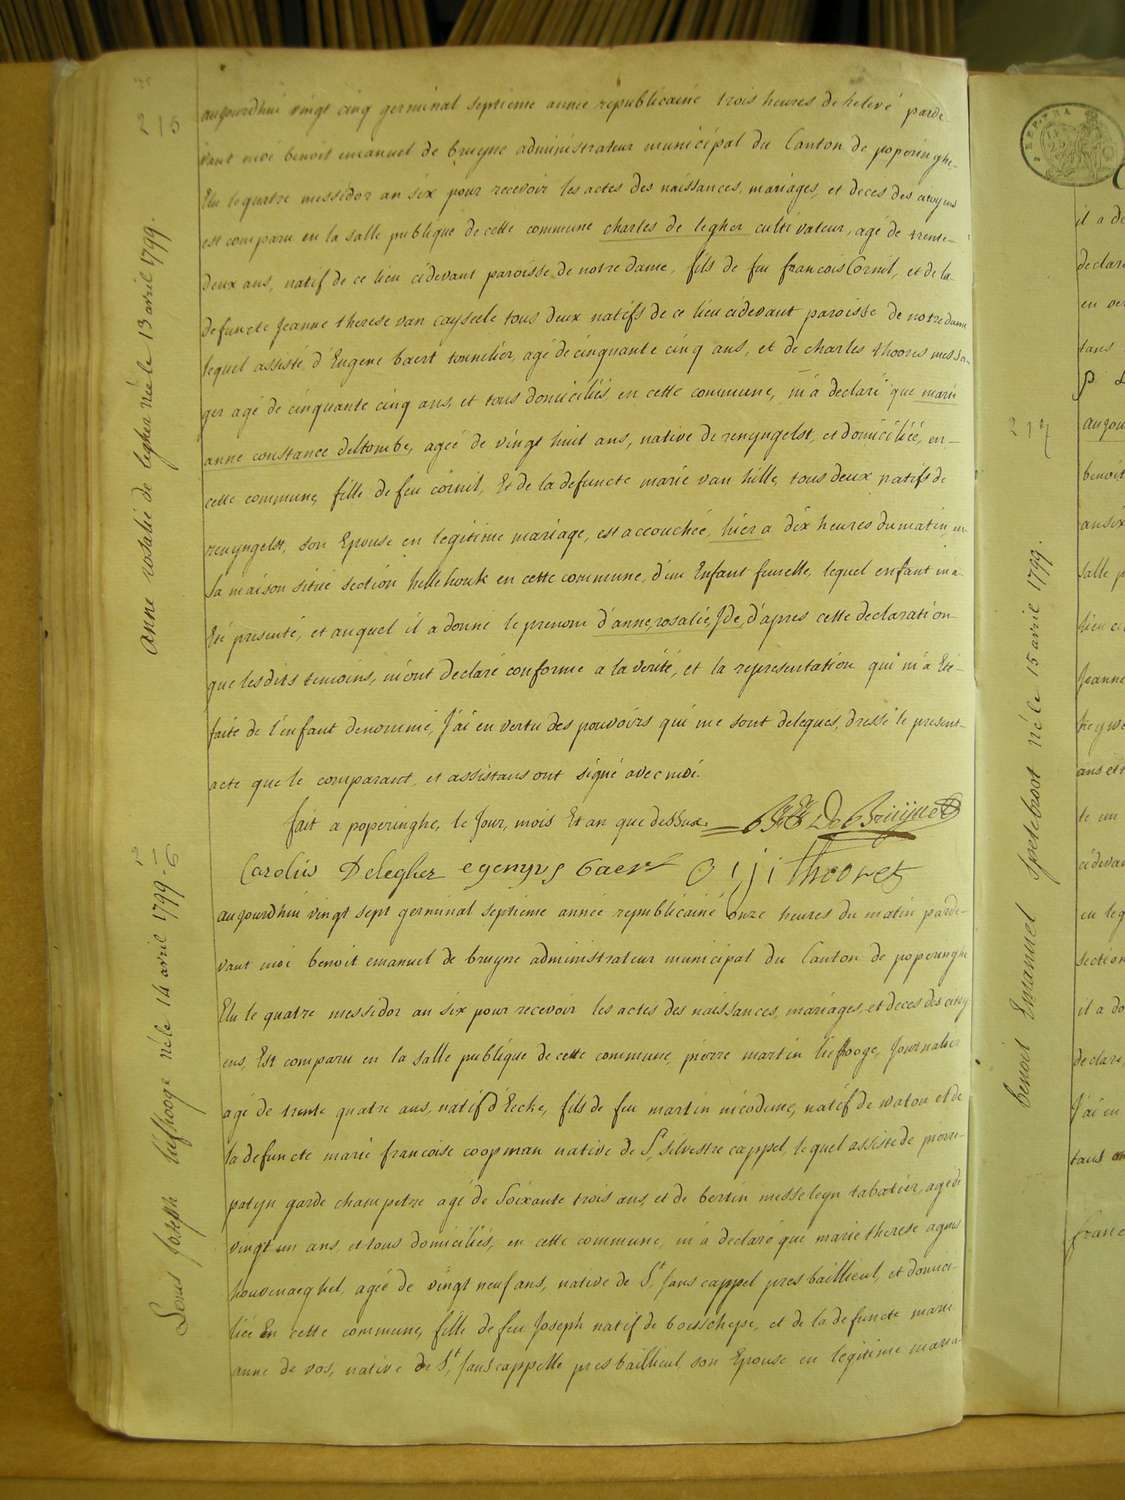 215
anne rosalie de legher née le 13 avril 1799.
aujourdhui vingt cinq germinal septieme année republicaine trois heures de relevé parde
vant moi benoit emanuel de bruyne administrateur municipal du Canton de poperinghe
Elu le quatre messidor an six pour recevoir les actes des naissances, mariages, et deces des citoyens
est comparu en la salle publique de cette commune charles de legher cultivateur, agé de trente
deux ans, natif de ce lieu cidevant paroisse de notre dame, fils de feu francois Cornil, et de la
defuncte Jeanne therese van cayseele tous deux natifs de ce lieu cidevant paroisse de notre dame
lequel assisté d'Eugene baert tonnelier, agé de cinquante cinq ans, et de charles thoores messa
ger agé de cinquante cinq ans, et tous domiciliés en cette commune, m'a declaré que marie
anne constance deltombe, agée de vingt huit ans, native de renyngelst, et domiciliée, en
cette commune, fille de feu cornil, Et de la defuncte marie van hille, tous deux natifs de
renyngelst, son Epouse en legitime mariage, est accouchée, hier a dix heures du matin, en
la maison situé section hellehouk en cette commune, d'un Enfant femelle, lequel enfant m'a
Eté presenté, et auquel il a donné le prenom d'anne, rosalie, J'de, d'apres cette declaration
que lesdits temoins, m'ont declaré conforme a la verité, et la representation qui m'a Eté
faite de l'enfant denommé, J'ai en vertu des pouvoirs qui me sont delegués, dressé le present
acte que le comparant, et assistans ont signé avec moi.
fait a poperinghe, le Jour, mois Et an que dessus. De Bruyne
Carolus Delegher egenyus baert thoores
216
Louis Joseph liefhooge né le 14 avril 1799
aujourdhui vingt sept germinal septieme année republicaine onze heures du matin parde
vant moi benoit emanuel de bruyne administrateur municipal du Canton de poperinghe
Elu le quatre messidor an six pour recevoir les actes des naissances, mariages, et deces des citoy
ens, Est comparu en la salle publique de cette commune, pierre martin liefhooge, Journalier
agé de trente quatre ans, natif d'Eecke, fils de feu martin nicodeme, natif de watou et de
la defuncte marie francoise coopman native de St silvestre cappel, lequel assisté de pierre
patyn garde champetre agé de Soixante trois ans, et de bertin messeleyn tabatier, agé de
vingt un ans, et tous domiciliés, en cette commune, m'a declaré que marie therese agnes
houvenaeghel, agée de vingt neuf ans, native de St Jans cappel pres baillieul, et domici
liée En cette commune, fille de feu Joseph natif de boisschepe, et de la defuncte marie
anne de vos, native de St Jans cappelle pres baillieul, son Epouse en legitime maria
217
benoit Emanuel spetebroot né le 15 avril 1799.
il a do
declara
en ver
tans
aujou
benoit
an six
salle p
lieu ci
Jeanne
ans et
te un
cidevan
en leg
section
il a do
declare
J'ai en
tans
franc